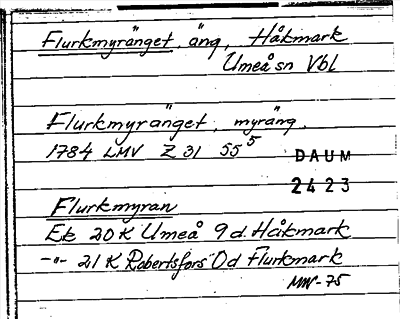 Flurkmyränget, äng, Håkmark
Umeå sn Vbl
Flurkmyränget, myräng.
1784 LMV Z 31 55⁵
DAUM
2423
Flurkmyran
Ek 20 K Umeå 9 d Håkmark
-"- 21 K Robertsfors 0d Flurkmark
MW-75